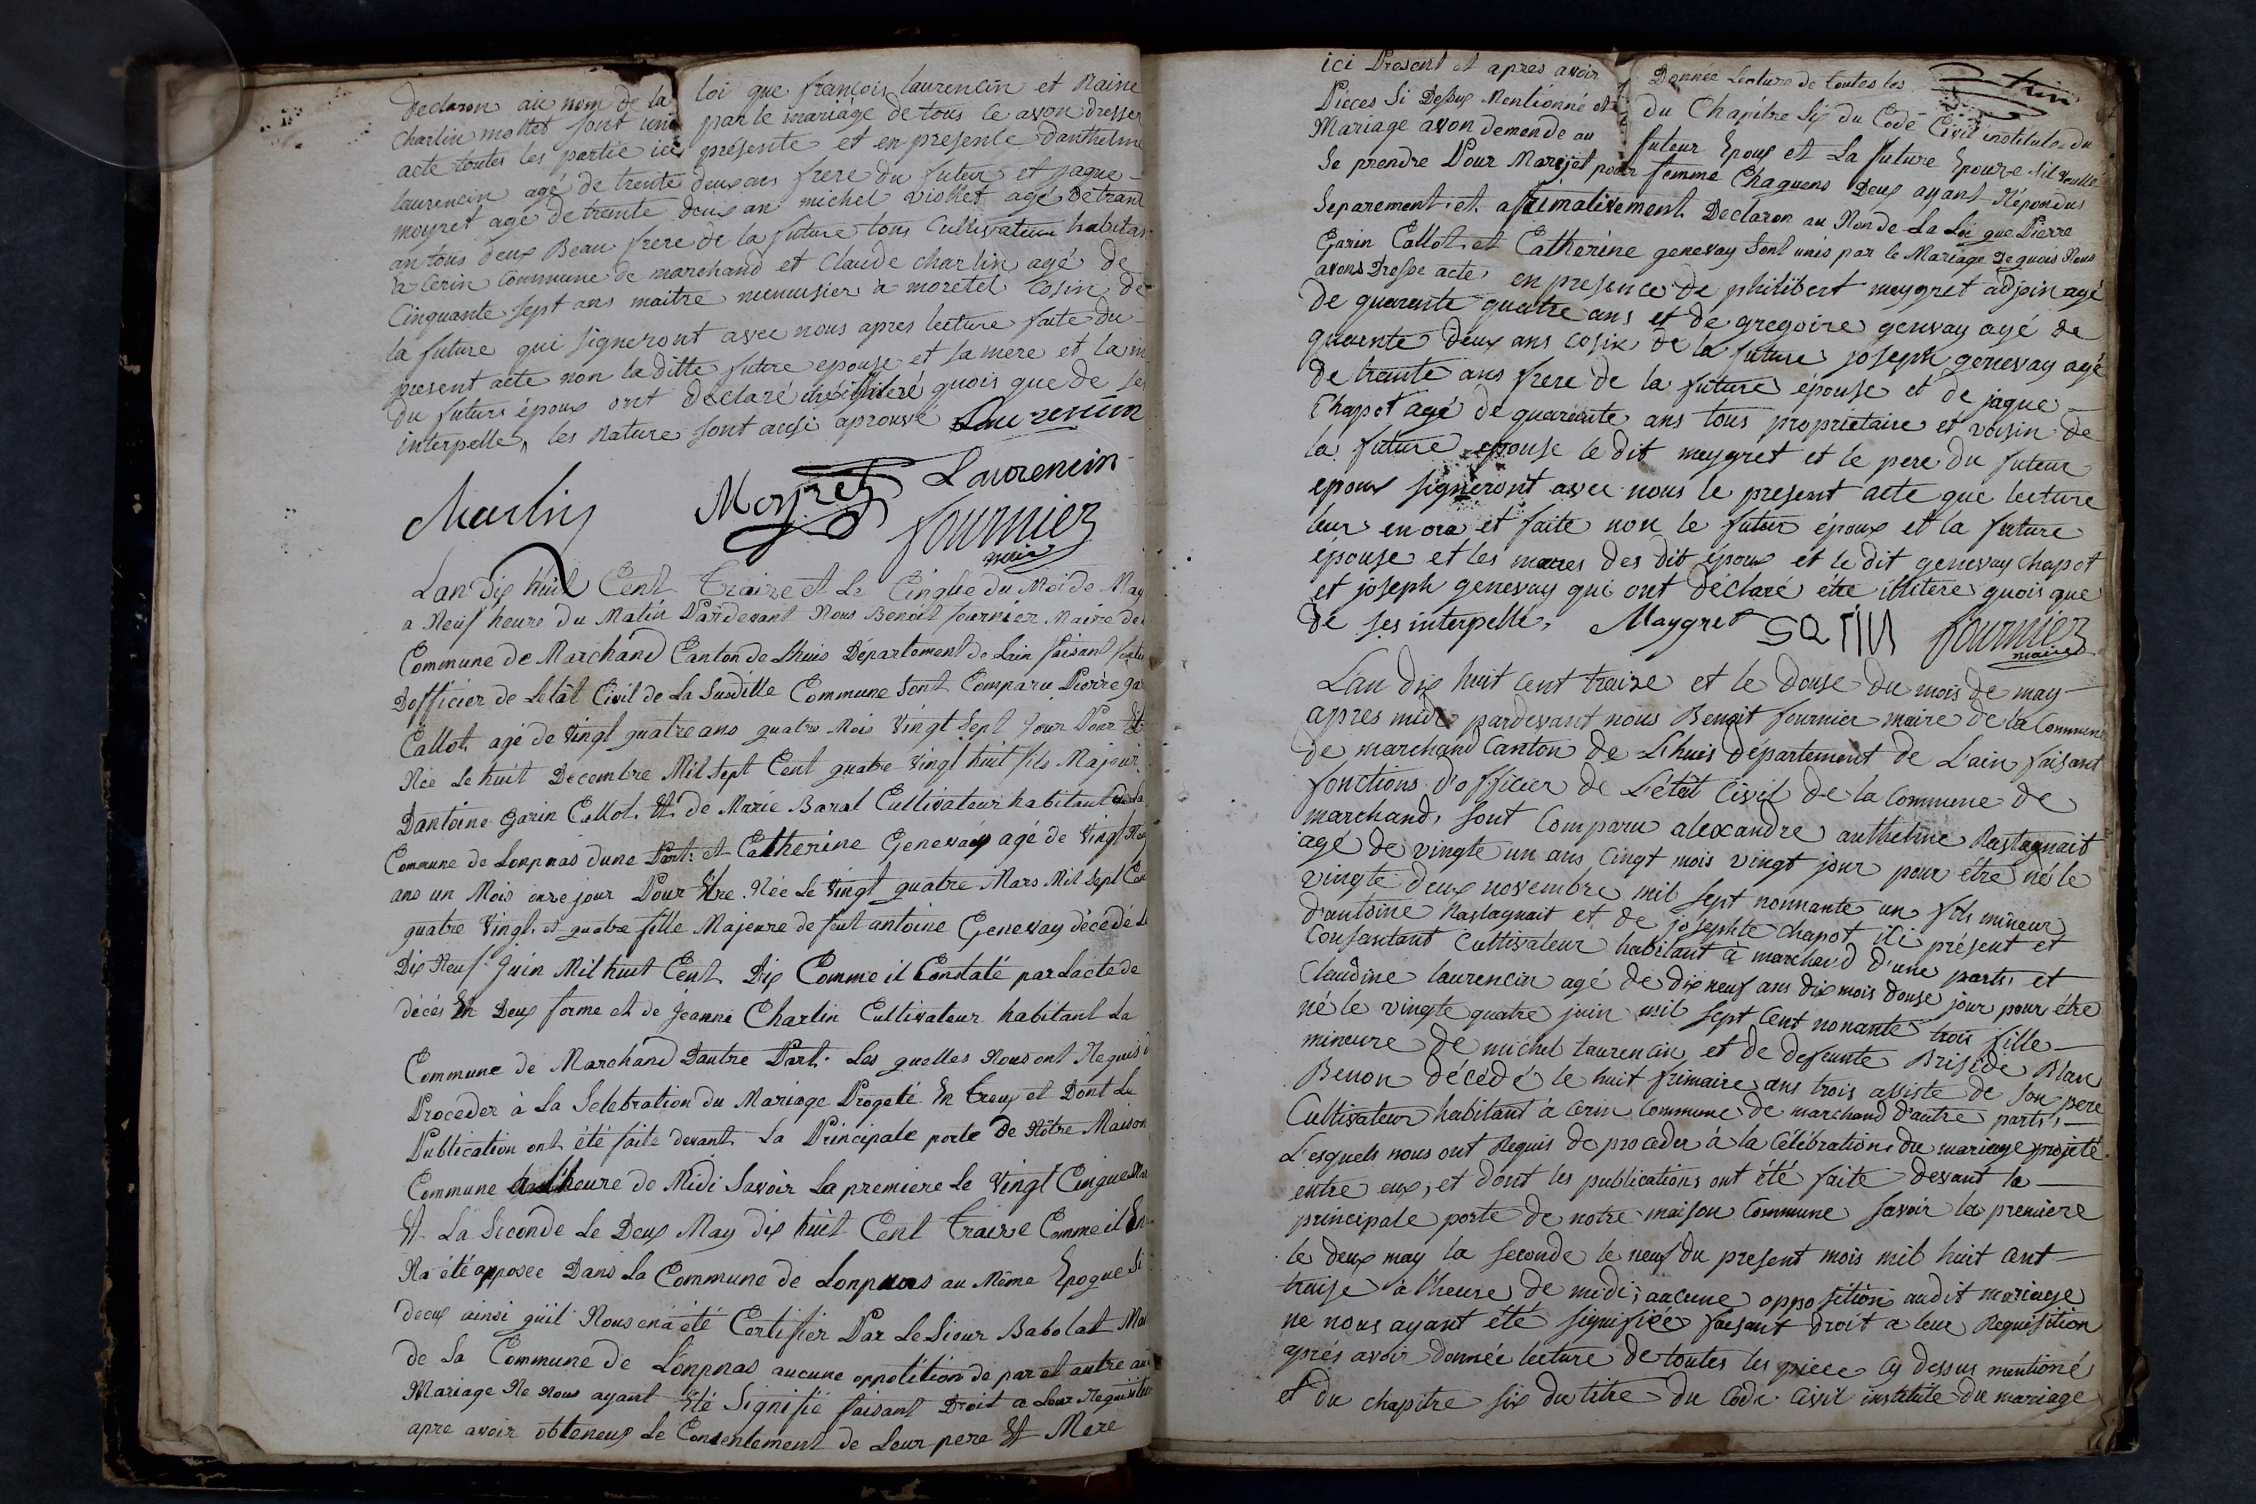 declaron au nom de la loi que francois laurencin et Naine
Charlin mollet sont unie par le mariage de tous ce avon dresser
acte toutes les partie ici présente et en presence danthelme
laurencin agé de trente deux ans frere du futur et jaque
moyret age de trente deux an michel viollet agé de trant
an tous deux Beau frere de la future tous Cultivateur habitan
a Cerin Commune de marchand et Claude charlin agé de
Cinquante sept ans maitre menuisier a moretel Cosin de
la future qui signeront avec nous apres lecture faite du
present acte non la ditte future epouse et sa mere et la m
du futurs époux ont déclaré être illiteré quois que de se
interpelle, les Rature sont ausi aprouvé Laurencin
Charlin Moyret Laurencin
fournier
maire
Lan dix huit Cent Traire et Le Cinque du Moi de May
a Neuf heure du Matin Pardevant Nous Benoit fournier Maire de
Commune de Marchand Canton de Lhuis Département de Lain faisant fonti
Dofficier de Letât Civil de La Susditte Commune Sont Comparu Pierre ga
Callot agé de Vingt quatre ans quatre Mois Vingt Sept jour Pour Et
Née Le huit Decembre Mil Sept Cent quatre Vingt huit fils Majeur
Dantoine Garin Callot Et de Marie Baral Cultivateur habitant La
Commune de Lonpnas dune Part et Catherine Genevay agé de Vingt Neuf
ans un Mois onze jour Pour Etre Née Le Vingt quatre Mars Mil Sept Cen
quatre Vingt et quatre fille Majeure de feut antoine Genevay décédé Le
Dix Neuf Juin Mil huit Cent Dix Comme il Constaté par Lacte de
décés En Deux forme et de Jeanne Charlin Cultivateur habitant La
Commune de Marchand Dautre Part. Les quelles Nous ont Requis d
Proceder à La Selebration du Mariage Progeté En Treux et Dont Le
Publication ont été faite devant La Principale porte de Nôtre Maison
Commune a Lheure de Midi Savoir La premiere Le Vingt Cinque
Et La Seconde Le Deux May dix huit Cent Traire Comme il En
Na été opposee Dans La Commune de Lonpnas au Même Epoque Si
deux ainsi quil Nous en a été Certifier Par Le Sieur Babolat Mai
de La Commune de Lonpnas aucune oppotition de par et autre au
Mariage Ne Nous ayant Eté Signifié faisant Droit a Leur Requisition
apre avoir obteneux Le Consentement de Leur pere Et Mere
ici Present et apres avoir Donnée Lecture de toutes les
Pieces Si Dessus Mentionné et du Chapitre Six du Code Civil institule du
Mariage avon demende au futeur Epoux et La future Epouse sil veulle
Se prendre Pour Mari et pour femme Chaquens Deux ayant Répondus
Separement et afirmativement Declaron au Non de La Loi que Pierre
Garin Callot et Catherine genevay Sont unis par le Mariage De quois Nous
avons Dresse acte, en presence de philibert meygret adjoin agé
de quarante quatre ans et de gregoire genevay agé de
quarente deux ans cosin de la future joseph genevay agé
de trante ans frere de la future épouse et de jaque
Chapot agé de quarante ans tous proprietaire et voisin de
la future epouse le dit meygret et le pere du futeur
epoux signeront avec nous le present acte que lecture
leur en ora et faite non le futur époux et la future
épouse et les meres des dit époux et le dit genevay chapot
et joseph genevay qui ont déclaré être illitere quois que
de ses interpellé, Maygret fournier
maire
Lan dix huit cent traize et le douse du mois de may
apres midi pardevant nous Benoit fournier maire de la Commune
de marchand Canton de Lhuis departement de Lain faisant
fonctions d'officier de L'état civil de la Commune de
marchand, sont comparu alexandre anthelme Rastagnait
agé de vingte un ans cingt mois vingt jour pour être né le
vingte deux novembre mil sept nonnante un fils mineur
d'antoine Rastagnait et de josephte chapot ici présent et
Consantant Cultivateur habitant à marchand d'une parts, et
Claudine laurencin agé de dix neuf ans dix mois douse jour pour être
né le vingte quatre juin mil sept Cent nonante trois fille
mineure de michel laurencin et de defeunte Briside Blanc
Benon décédé le huit frimaire ans trois assiste de son pere
Cultivateur habitant à Cerin Commune de marchand d'autre parts,
Lesquels nous ont Requis de proceder à la Célébration du mariage projeté
entre eux, et dont les publications ont été faite devant la
principale porte de notre maison Commune savoir la premiere
le deux may la seconde le neuf du present mois mil huit cent
traize à l'heure de midi; aucune opposition audit mariage
ne nous ayant été signifiée faisant droit a leur Requisition
après avoir donnée lecture de toutes les piece cy dessus mentioné
et du chapitre six du titre du Code Civil institule du mariage